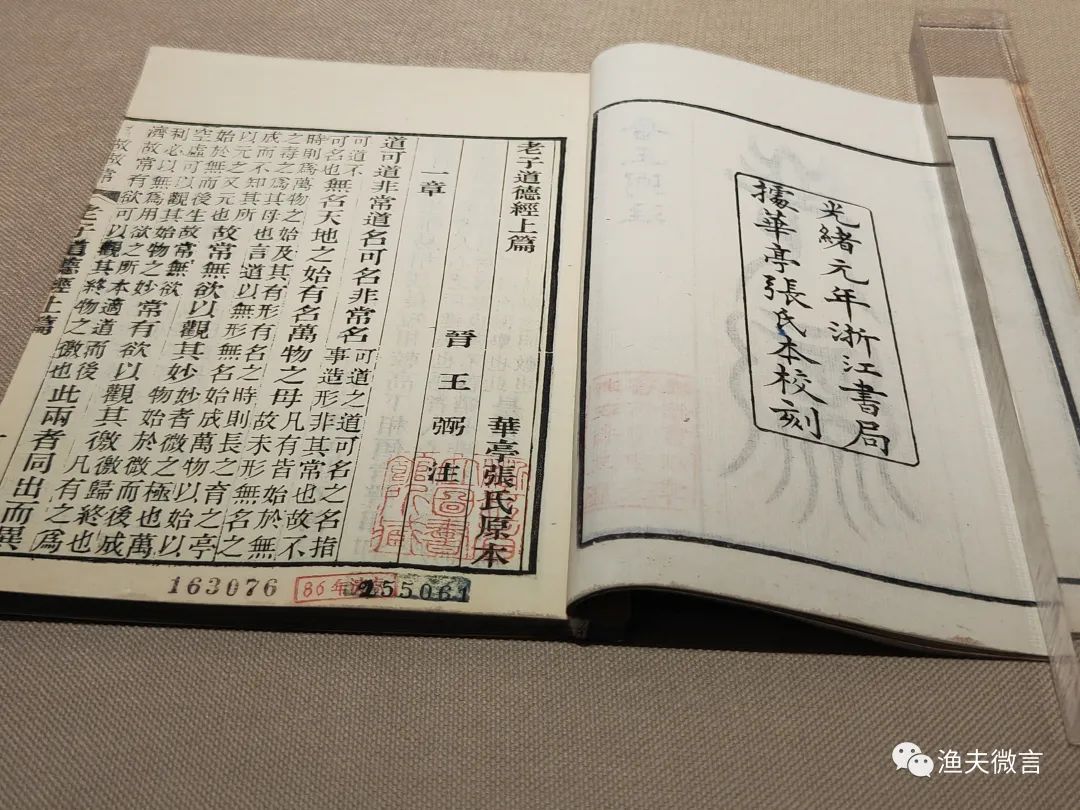 光緒元年浙江書局
據華亭張氏本校刻
老子道德經上篇 華亭張氏原本
晉 王 弼 注
一章
道可道非常道名可名非常名 可道之道可名之名指事造形非其常也故不
可道不可名也 無名天地之始有名萬物之母 凡有皆始於無故未形無名之
時則爲萬物之始及其有形有名之時則長之育之亭之毒之爲其母也言道以無形無名始成萬物以始以
成而不知其所以元之又元也 故常無欲以觀其妙 妙者微之極也萬物始於微而後成
始於無而後生故常無欲空虛可以觀其始物之妙 常有欲以觀其徼 徼歸終也凡有之爲
利必以無爲用欲之所本適道而後濟故常有欲可以觀其終物之徼也 此兩者同出而異
老子道德經上篇 一
163076
86年
255061
渔夫微言